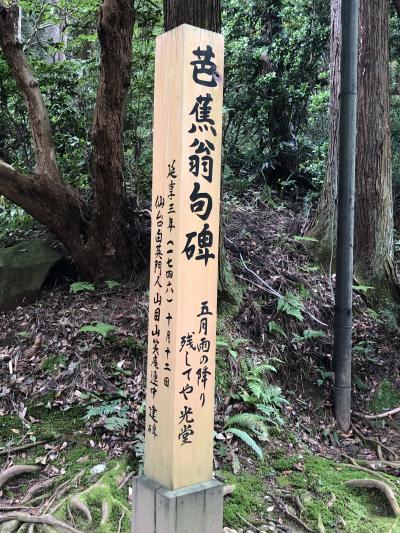 芭蕉翁句碑
五月雨の降り
残してや光堂
延享三年（一七四六）十月十二日
仙台白英門人、山目山笑庵連中建碑